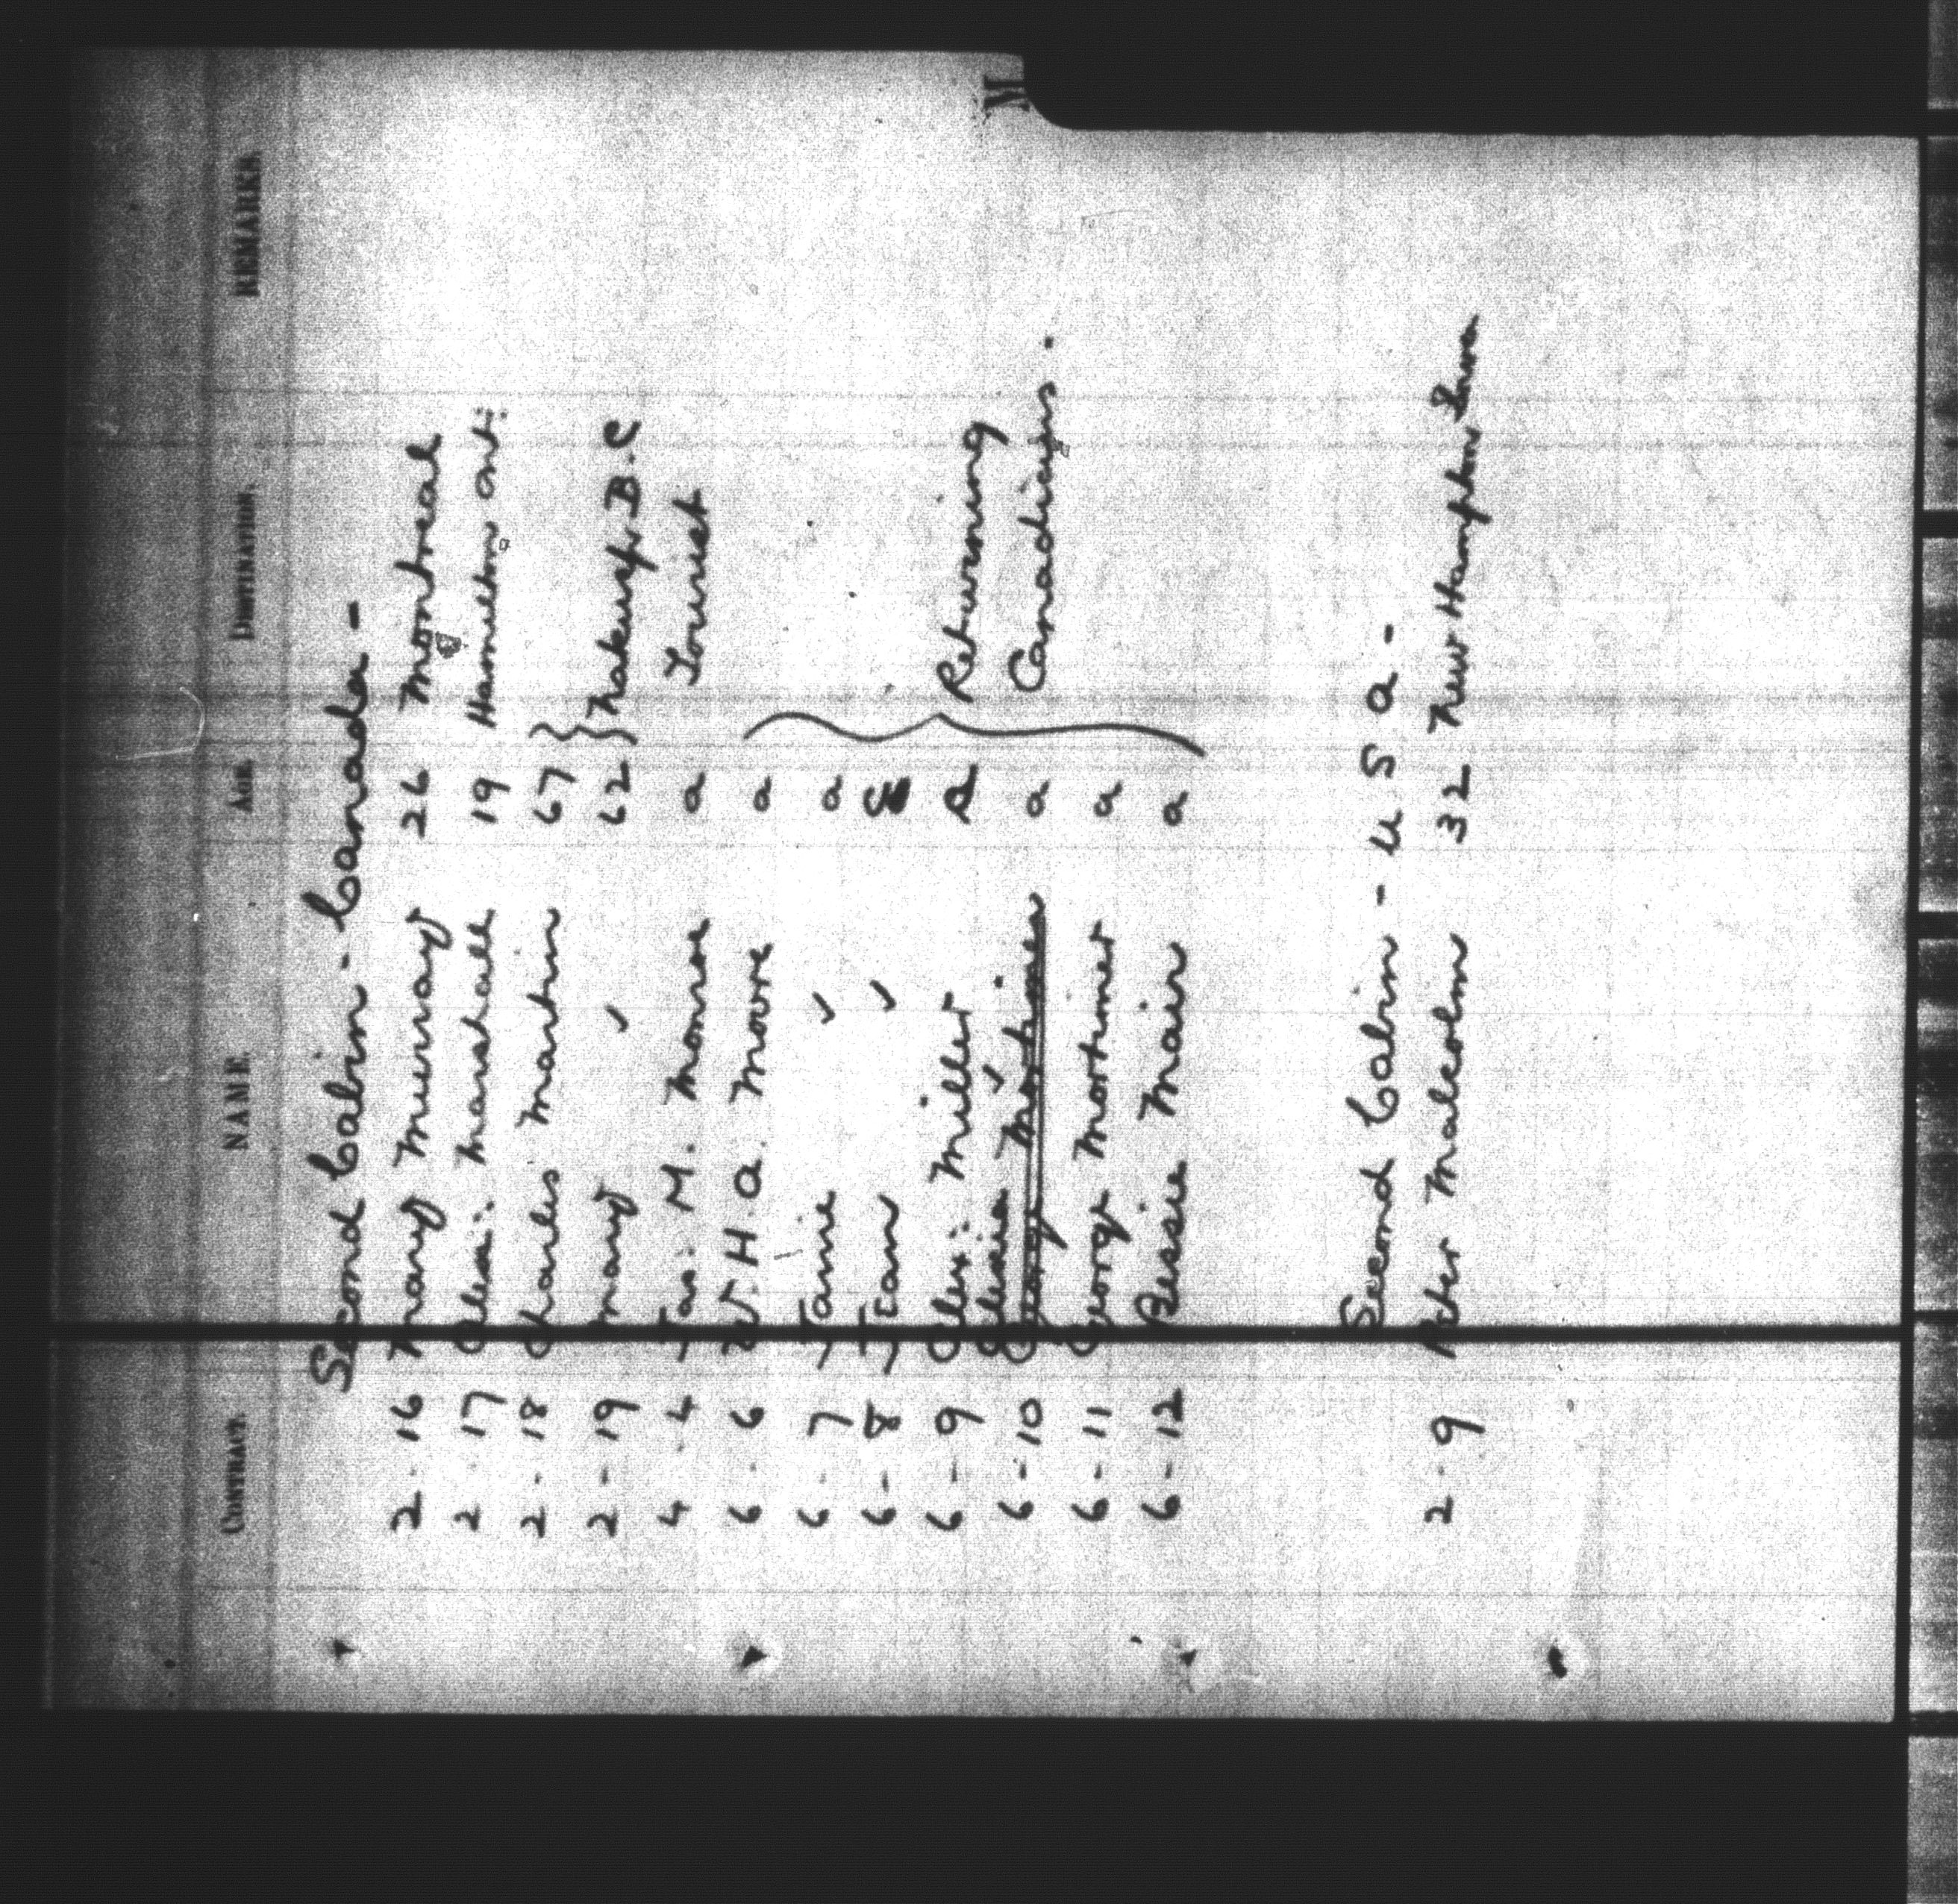 M
CONTRACT. NAME. AGE. DESTINATION. REMARKS.
Second Cabin - Canada -
2-16 Mary Murray 26 Montreal
2 17 Alex: Marshall 19 Hamilton Ont:
2-18 Charles Martin 67
2-19 Mary ✓ 62 Nakusp B.C
4-4 Jas: M. Monroe a Tourist
6-6 W.H.A. Moore a
6-7 Jane ✓ a
6-8 Jean ✓
6-9 Alex: Miller a Returning
6-10 George Mortimer a Canadians.
6-11 George Mortimer a
6-12 Bessie Mair a
Second Cabin - U S A -
2-9 Peter Malcolm 32 New Hampton Iowa